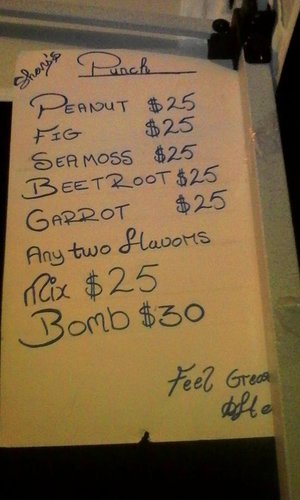 Shory's Punch
PEANUT $25
FIG $25
SEAMOSS $25
BEETROOT $25
GARROT $25
Any two flavors
Mix $25
Bomb $30
Feel Grea
Afte